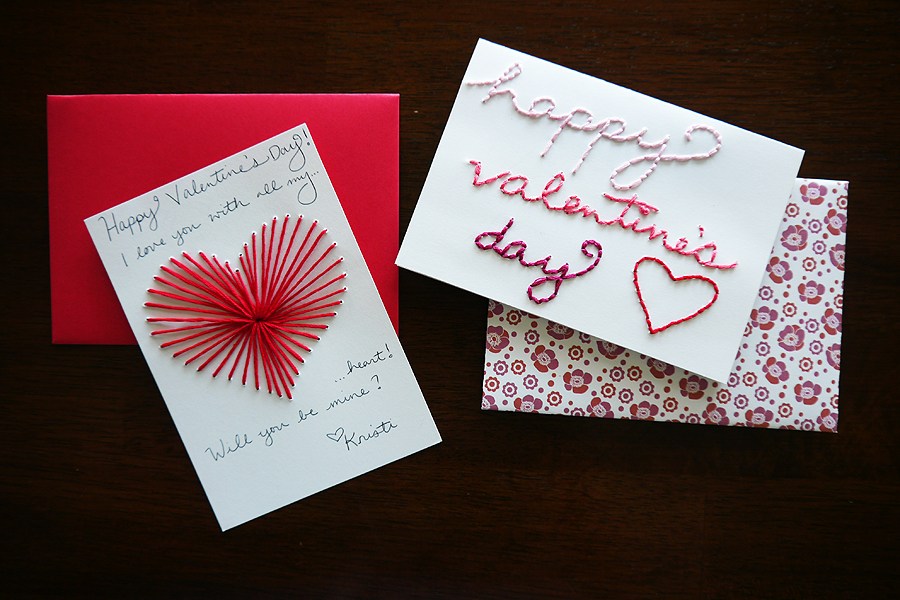 Happy Valentine's Day!
I love you with all my...
...heart!
Will you be mine?
♡Kristi
happy
valentine's
day